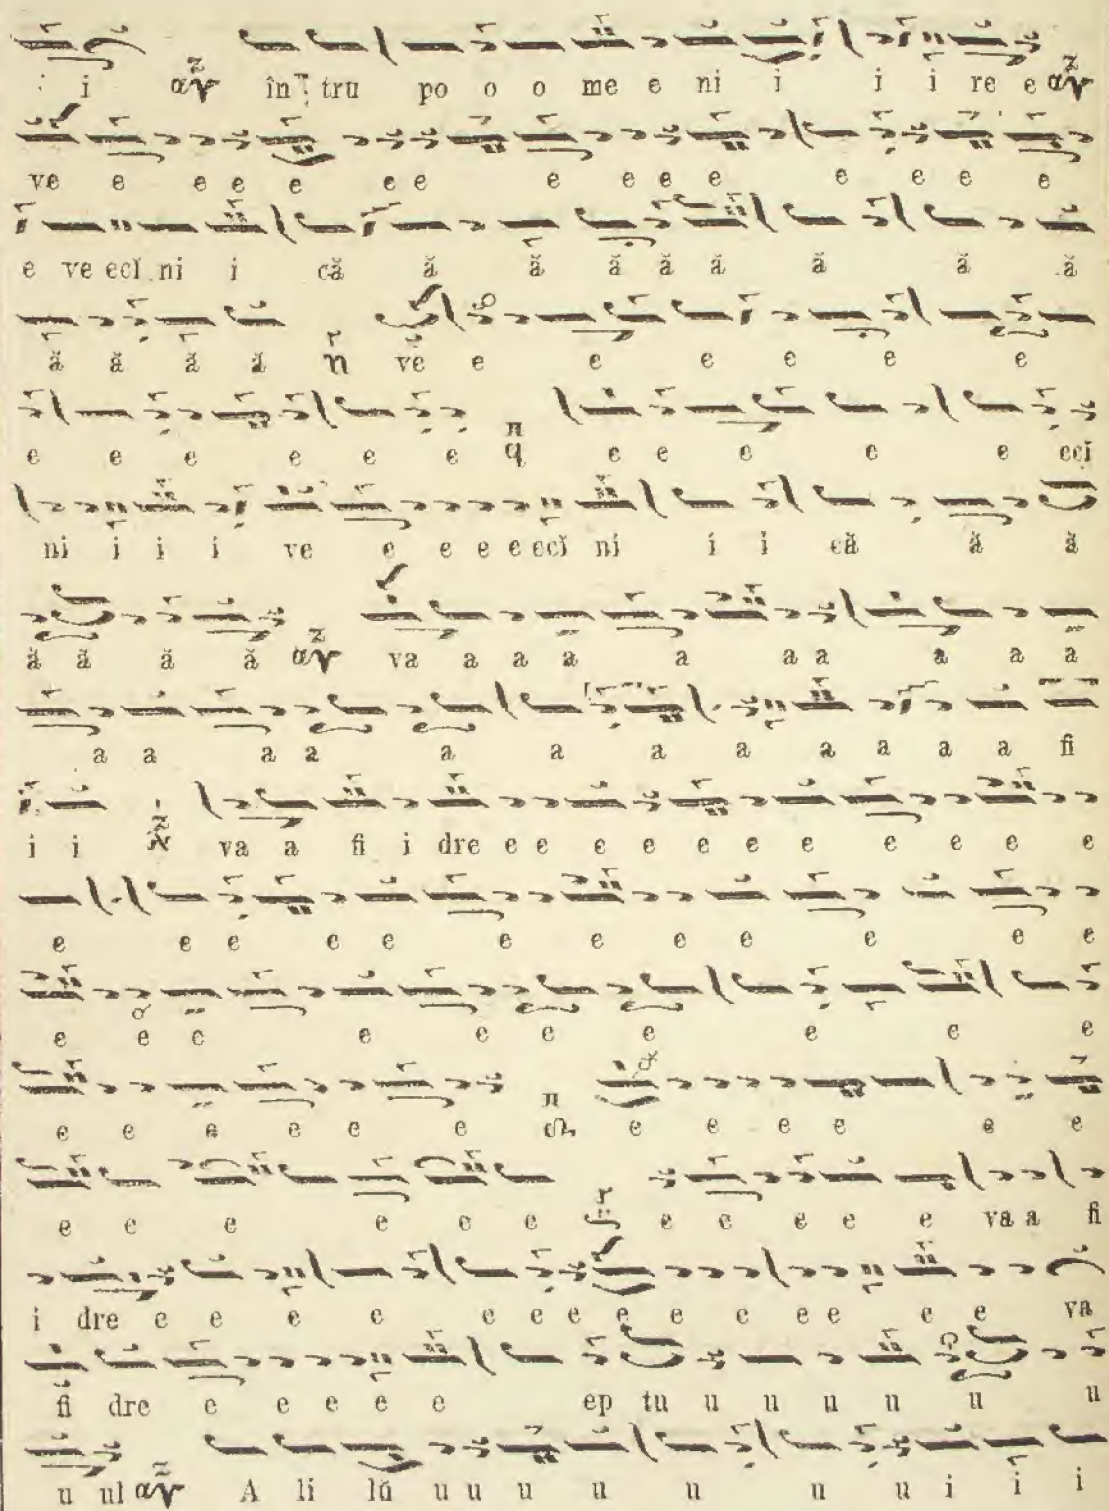 i i în tru po o o me e ni i i i re e
ve e e e e e e e e e e e e e e
e ve ecĭ ni i că ă ă ă ă ă ă ă ă
ă ă ă ă ve e e e e e e
e e e e e e e e e e e ecĭ
ni i i i ve e e e e ecĭ ni i i că ă ă
ă ă ă ă va a a a a a a a a a
a a a a a a a a a a a a fi
i i va a fi i dre e e e e e e e e e e
e e e e e e e e e e e e
e e e e e e e e e e
e e e e e e e e e e e e
e e e e e e e e e e e va a fi
i dre e e e e e e e e e e e e e e va
fi dre e e e e e ep tu u u u u u u
u ul A li lŭ u u u u u u u i i i